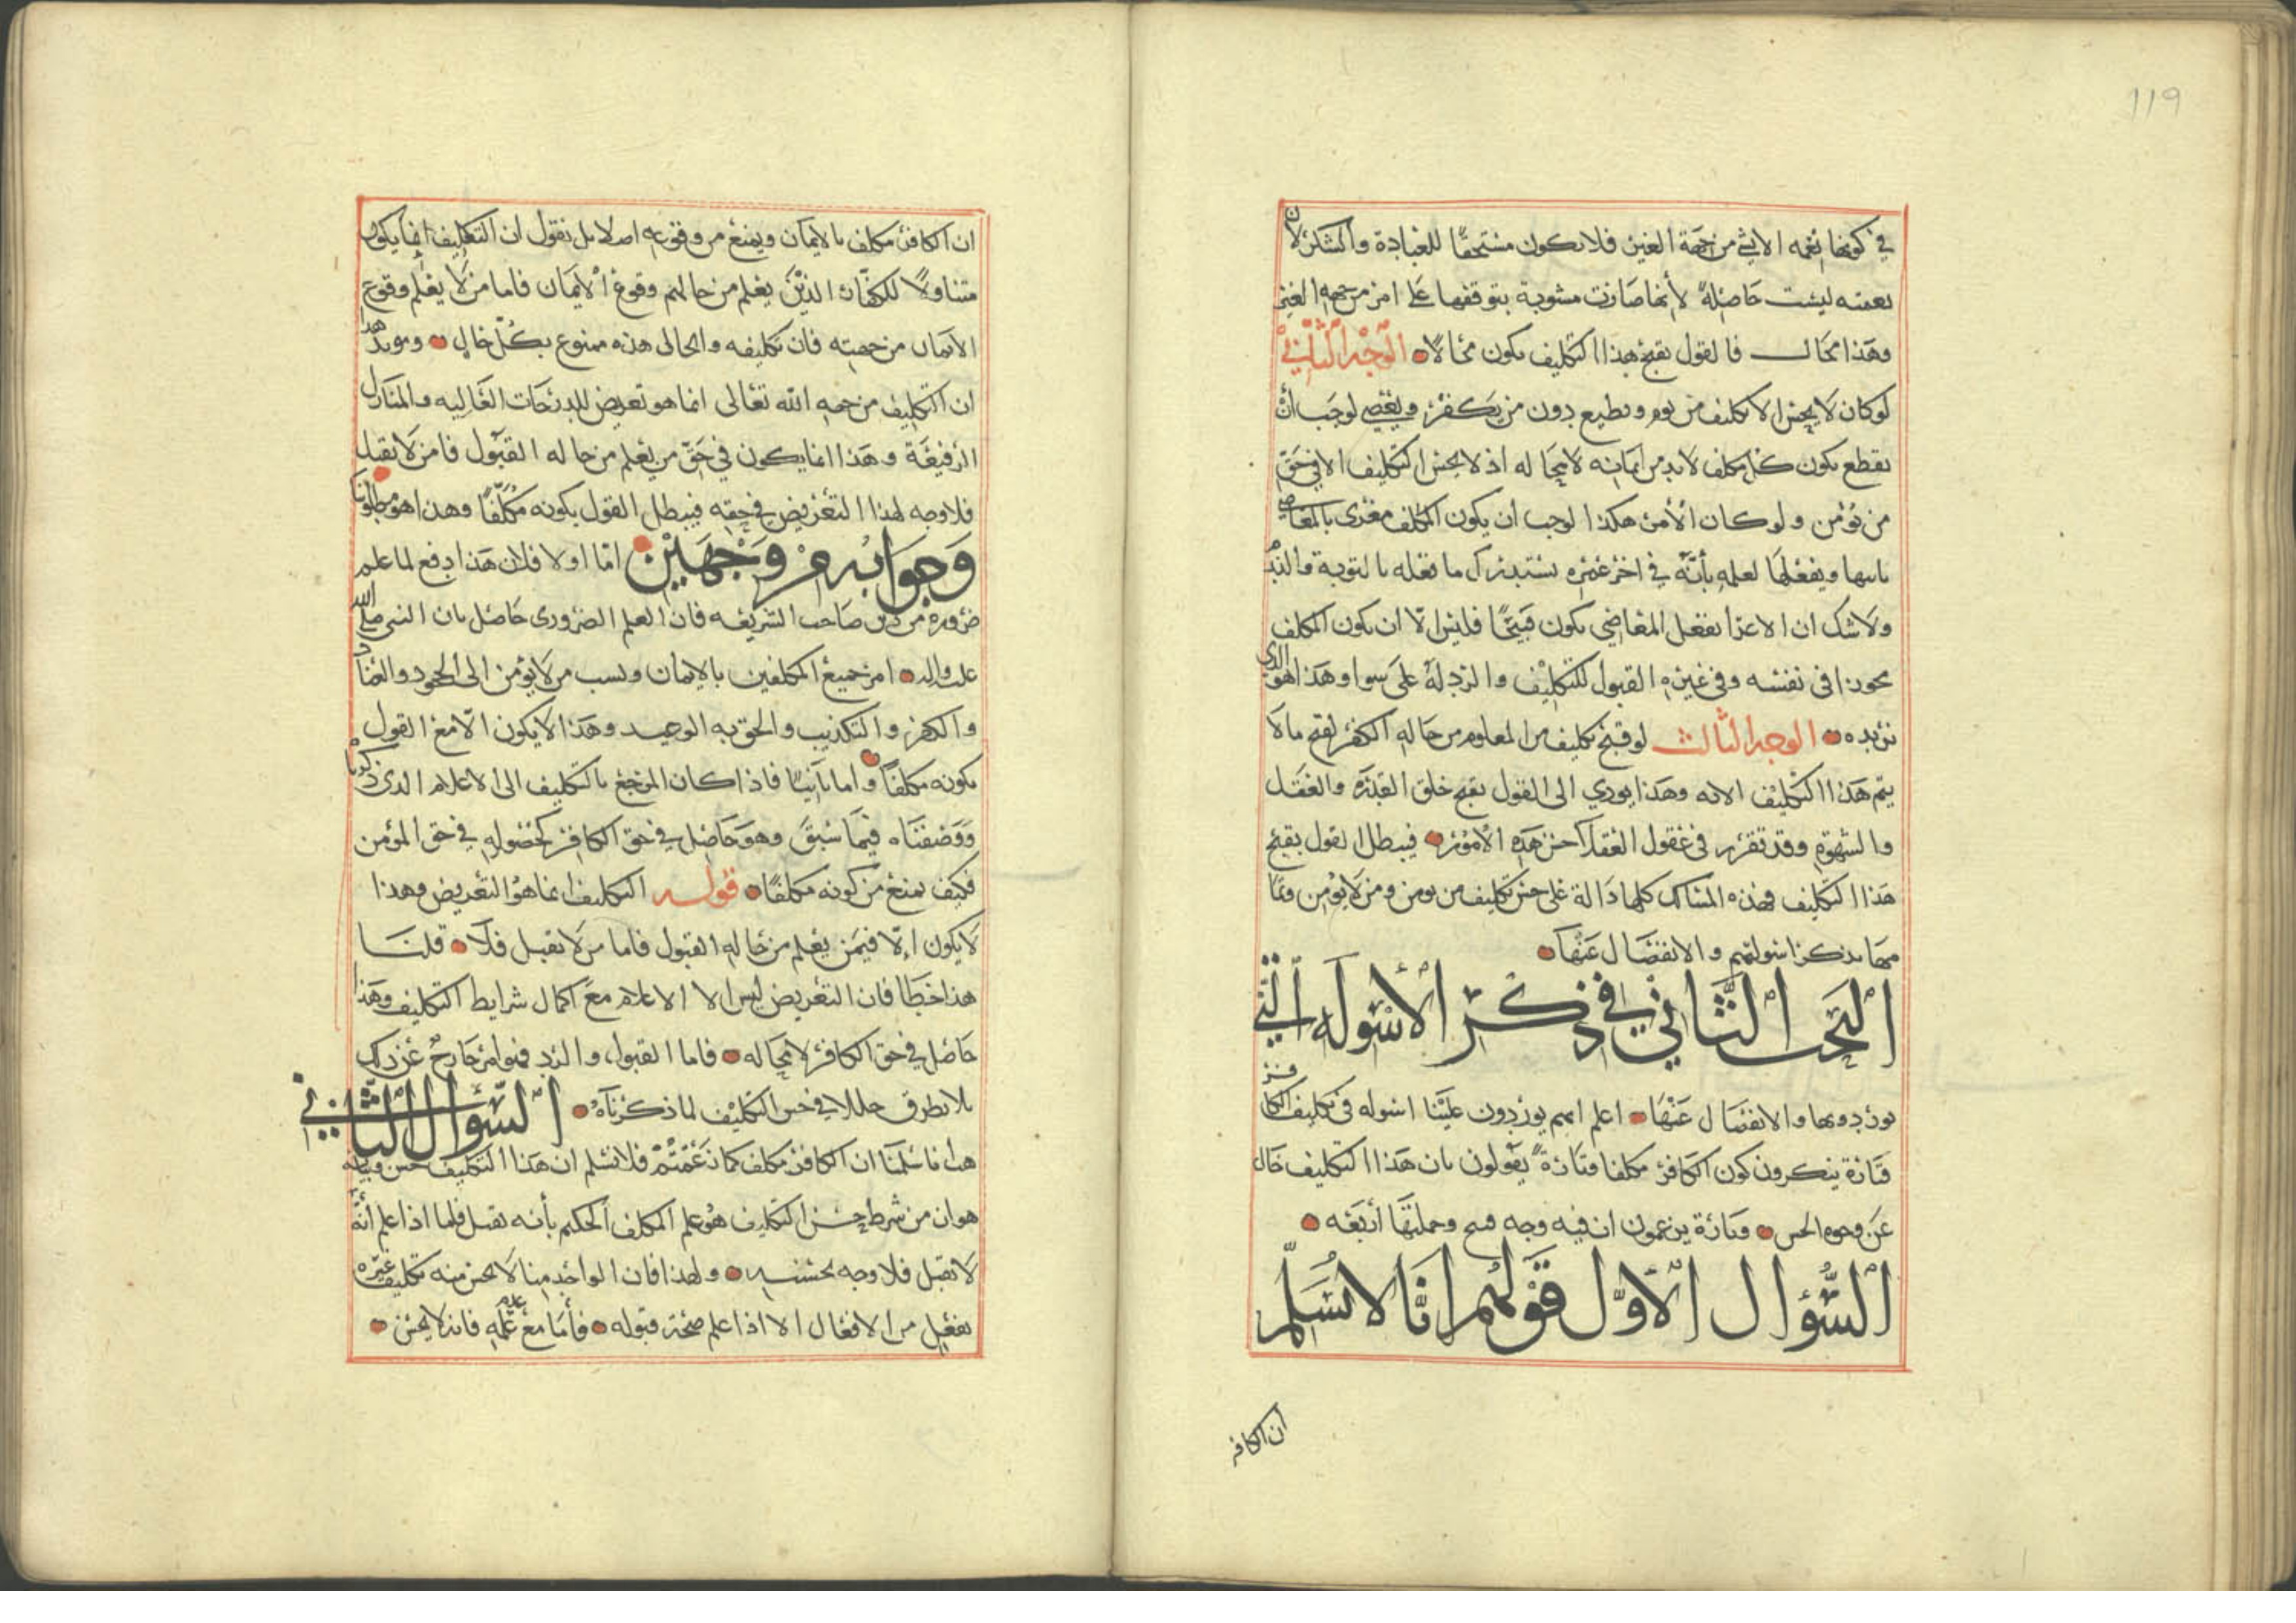 119
في كونها نعمه الا شي من جهة الغير فلا يكون مستحقًا للعبادة والشكر لان
نعمته ليست حاصلة لأنها صارت مشوبة بتوقفها على امر من جهه الغير
وهذا محال فالقول بقبح هذا التكليف يكون محالًا الوجه الثاني
لو كان لا يحسن الا تكليف من يومن ويطيع دون من يكفر ويعصي لوجب أن
نقطع بكون كل مكلف لا بد من ايمانه لا محاله اذ لا يحسن التكليف الا في حق
من يؤمن ولو كان الأمر هكذا لوجب أن يكون المكلف مغرى بالمعاصي
ياتيها ويفعلها لعلمه بأنّه في اخر عمره يستدرك ما فعله بالتوبة والندم
ولا شك ان الاغرا بفعل المعاصي يكون قبيحًا فليس الّا ان يكون المكلف
مجوزا في نفسه وفي غيره القبول للتكليف والرد لهُ على سوا وهذا هو الذي
نريده الوجه الثالث لو قبح تكليف من المعلوم من حاله الكفر لقبح ما لا
يتم هذا التكليف الا به وهذا يودي الى القول بقبح خلق القدرة والعقل
والشهوة وقد تقرر في عقول العقلآ حسن هذه الأمور فيبطل القول بقبح
هذا التكليف فهذه المسالك كلها دالة على حسن تكليف من يومن ومن لا يؤمن وتمامها
بذكر اسولتهم والانفصال عنها
البحث الثاني في ذكر الأسوله التي
يوردونها والانفصال عنها اعلم انهم يوردون علينا اسوله في تكليف الكافر
فتارة ينكرون كون الكافر مكلفا وتارةً يقولون بان هذا التكليف خال
عن وجوه الحسن وتارة يزعمون ان فيه وجه قبح وجملتها أربعه
السؤال الأول قولهم انا لا نسلم
ان الكافر
ان الكافر مكلف بالايمان ويمنع من وقوعه اصلا بل نقول ان التكليف إنما يكون
متناولًا للكفّار الذين يعلم من حالهم وقوع الايمان فاما من لا يعلم وقوع
الايمان من جهته فان تكليفه والحال هذه ممنوع بكل حال ويويد هذا
ان التكليف من جهه الله تعالى انما هو تعريض للدرجات العاليه والمنازل
الرفيعة وهذا انما يكون في حق من يعلم من حاله القبول فاما من لا يقبل
فلا وجه لهذا التعريض في حقه فيبطل القول بكونه مكلّفًا وهذا هو مطلوبنا
وجوابه من وجهين امّا اولا فلان هذا دفع لما علم
ضروره من دين صاحب الشريعه فان العلم الضروري حاصل بان النبي صلى الله
عليه واله امر جميع المكلفين بالايمان ونسب من لا يؤمن الى الجحود والعناد
والكفر والتكذيب والحق به الوعيد وهذا لا يكون الّا مع القول
بكونه مكلفًا واما ثانيًا فاذا كان المرجع بالتكليف الى الاعلام الذي ذكرنا
ووصفناه فيما سبق وهو حاصل في حق الكافر كحصوله في حق المؤمن
فكيف يمنع من كونه مكلفًا قوله التكليف انما هو التعريض وهذا
لا يكون إلّا فيمن يعلم من حاله القبول فاما من لا يقبل فلا قلنا
هذا خطا فان التعريض ليس الا الاعلام مع اكمال شرايط التكليف وهذا
حاصل في حق الكافر لا محاله فاما القبول والرد فهو امر خارج عن ذلك
فلا يطرق خللا في حسن التكليف لما ذكرناه السؤال الثاني
هب انا سلمنا ان الكافر مكلف كما زعمتُم فلا نسلم ان هذا التكليف حسن وبيانه
هو ان من شرط حسن التكليف هو علم المكلف الحكيم بأنه يقبل فاما اذا علم انّه
لا يقبل فلا وجه لحسنه ولهذا فان الواحد منا لا يحسن منه تكليف غيره
بفعل من الافعال الا اذا علم صحة قبوله فأما مع علمه عدم فانه لا يحسن